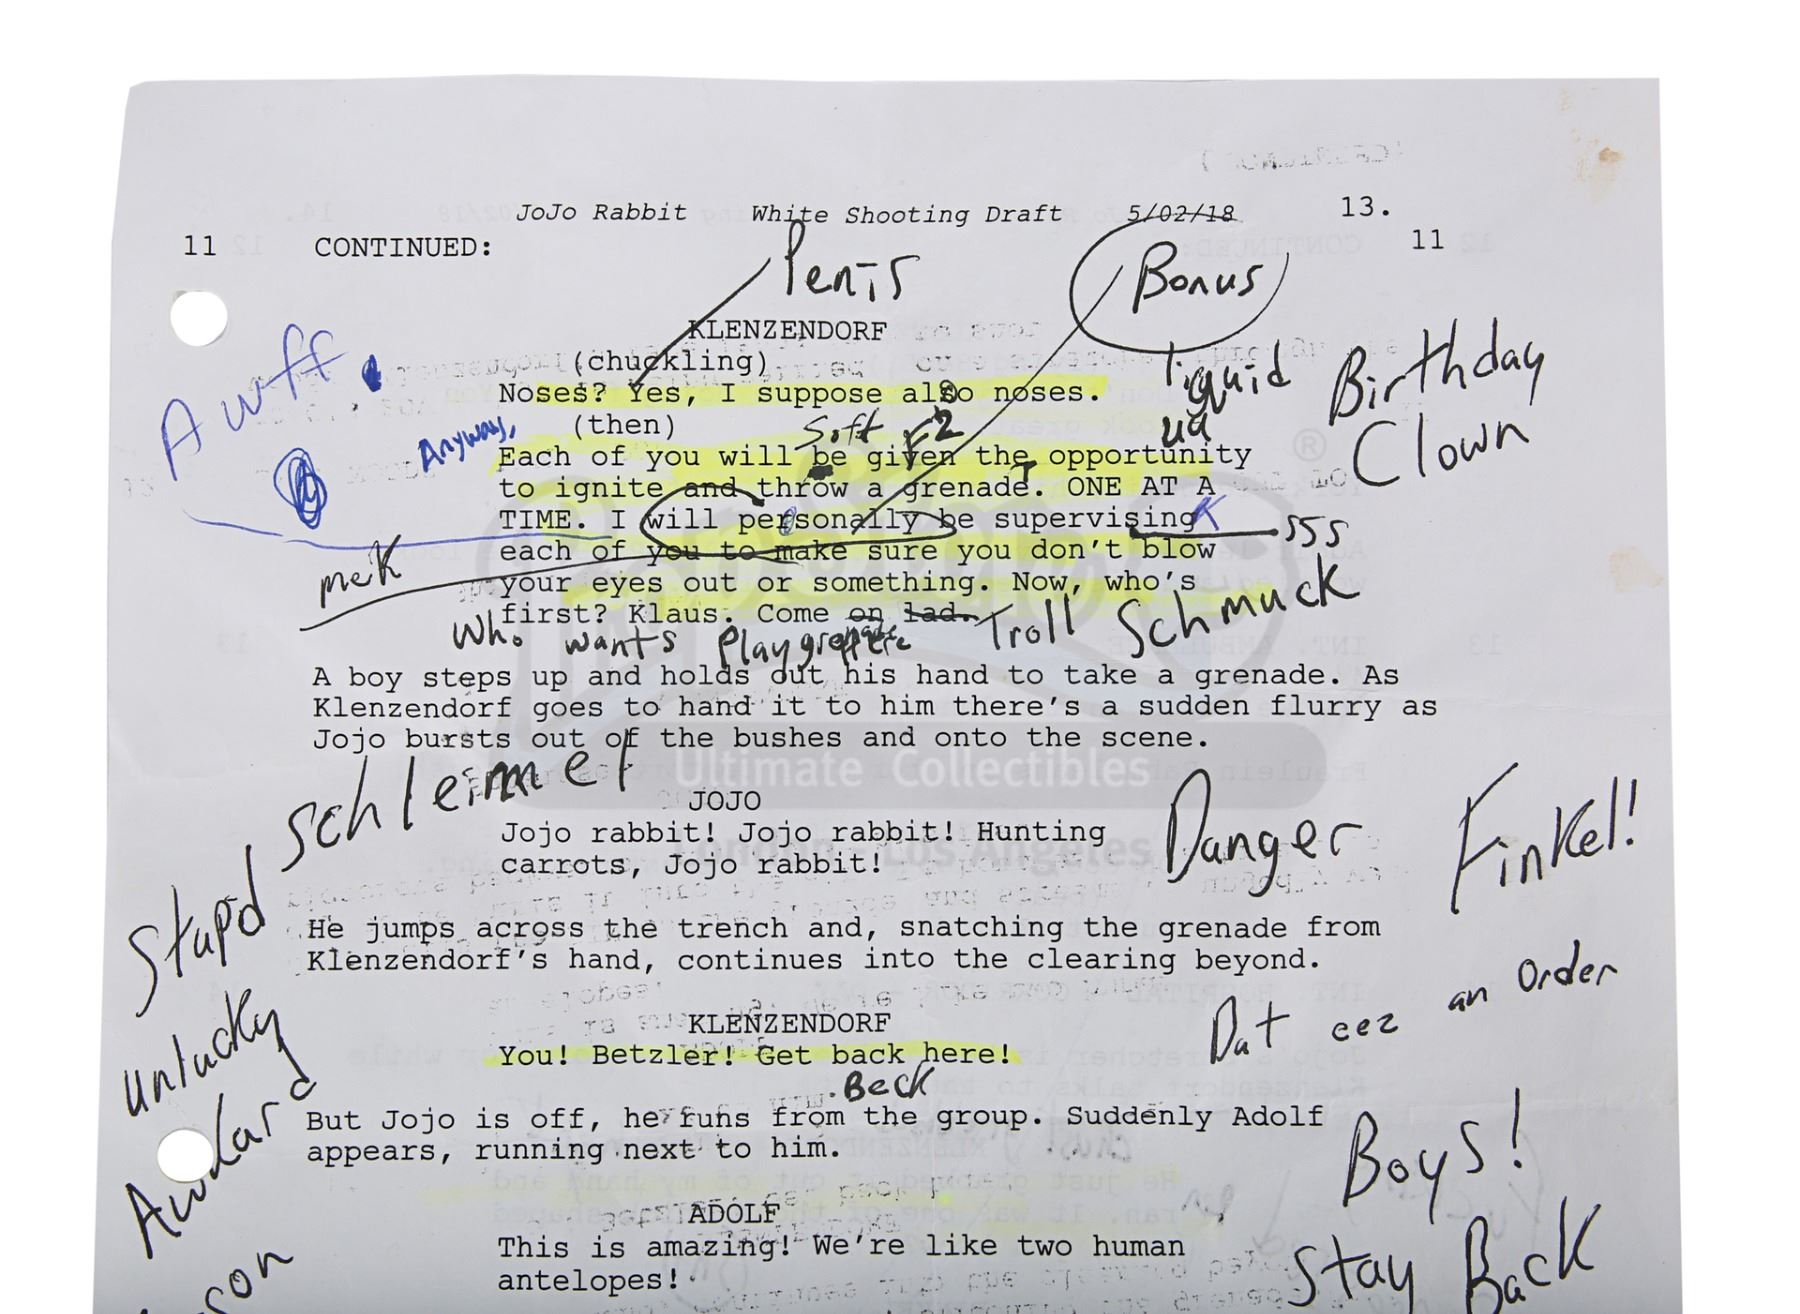 JoJo Rabbit White Shooting Draft 5/02/18 13.
11 CONTINUED: 11
Penis Bonus
KLENZENDORF
(chuckling)
Noses? Yes, I suppose also noses.
Awff
liquid
Birthday
Clown
(then)
Soft
Anyway,
Each of you will be given the opportunity
to ignite and throw a grenade. ONE AT A
TIME. I will personally be supervising
sss
each of you to make sure you don't blow
meK
your eyes out or something. Now, who's
first? Klaus. Come on lad.
Who wants Play Troll Schmuck
A boy steps up and holds out his hand to take a grenade. As
Klenzendorf goes to hand it to him there's a sudden flurry as
Jojo bursts out of the bushes and onto the scene.
Ultimate Collectibles
Schleimer
JOJO
Jojo rabbit! Jojo rabbit! Hunting
carrots, Jojo rabbit!
London - Los Angeles
Danger
Finkel!
Stupid
He jumps across the trench and, snatching the grenade from
Klenzendorf's hand, continues into the clearing beyond.
Dat eez an order
unlucky
KLENZENDORF
You! Betzler! Get back here!
Beck
But Jojo is off, he runs from the group. Suddenly Adolf
appears, running next to him.
Boys!
Stay Back
ADOLF
This is amazing! We're like two human
antelopes!